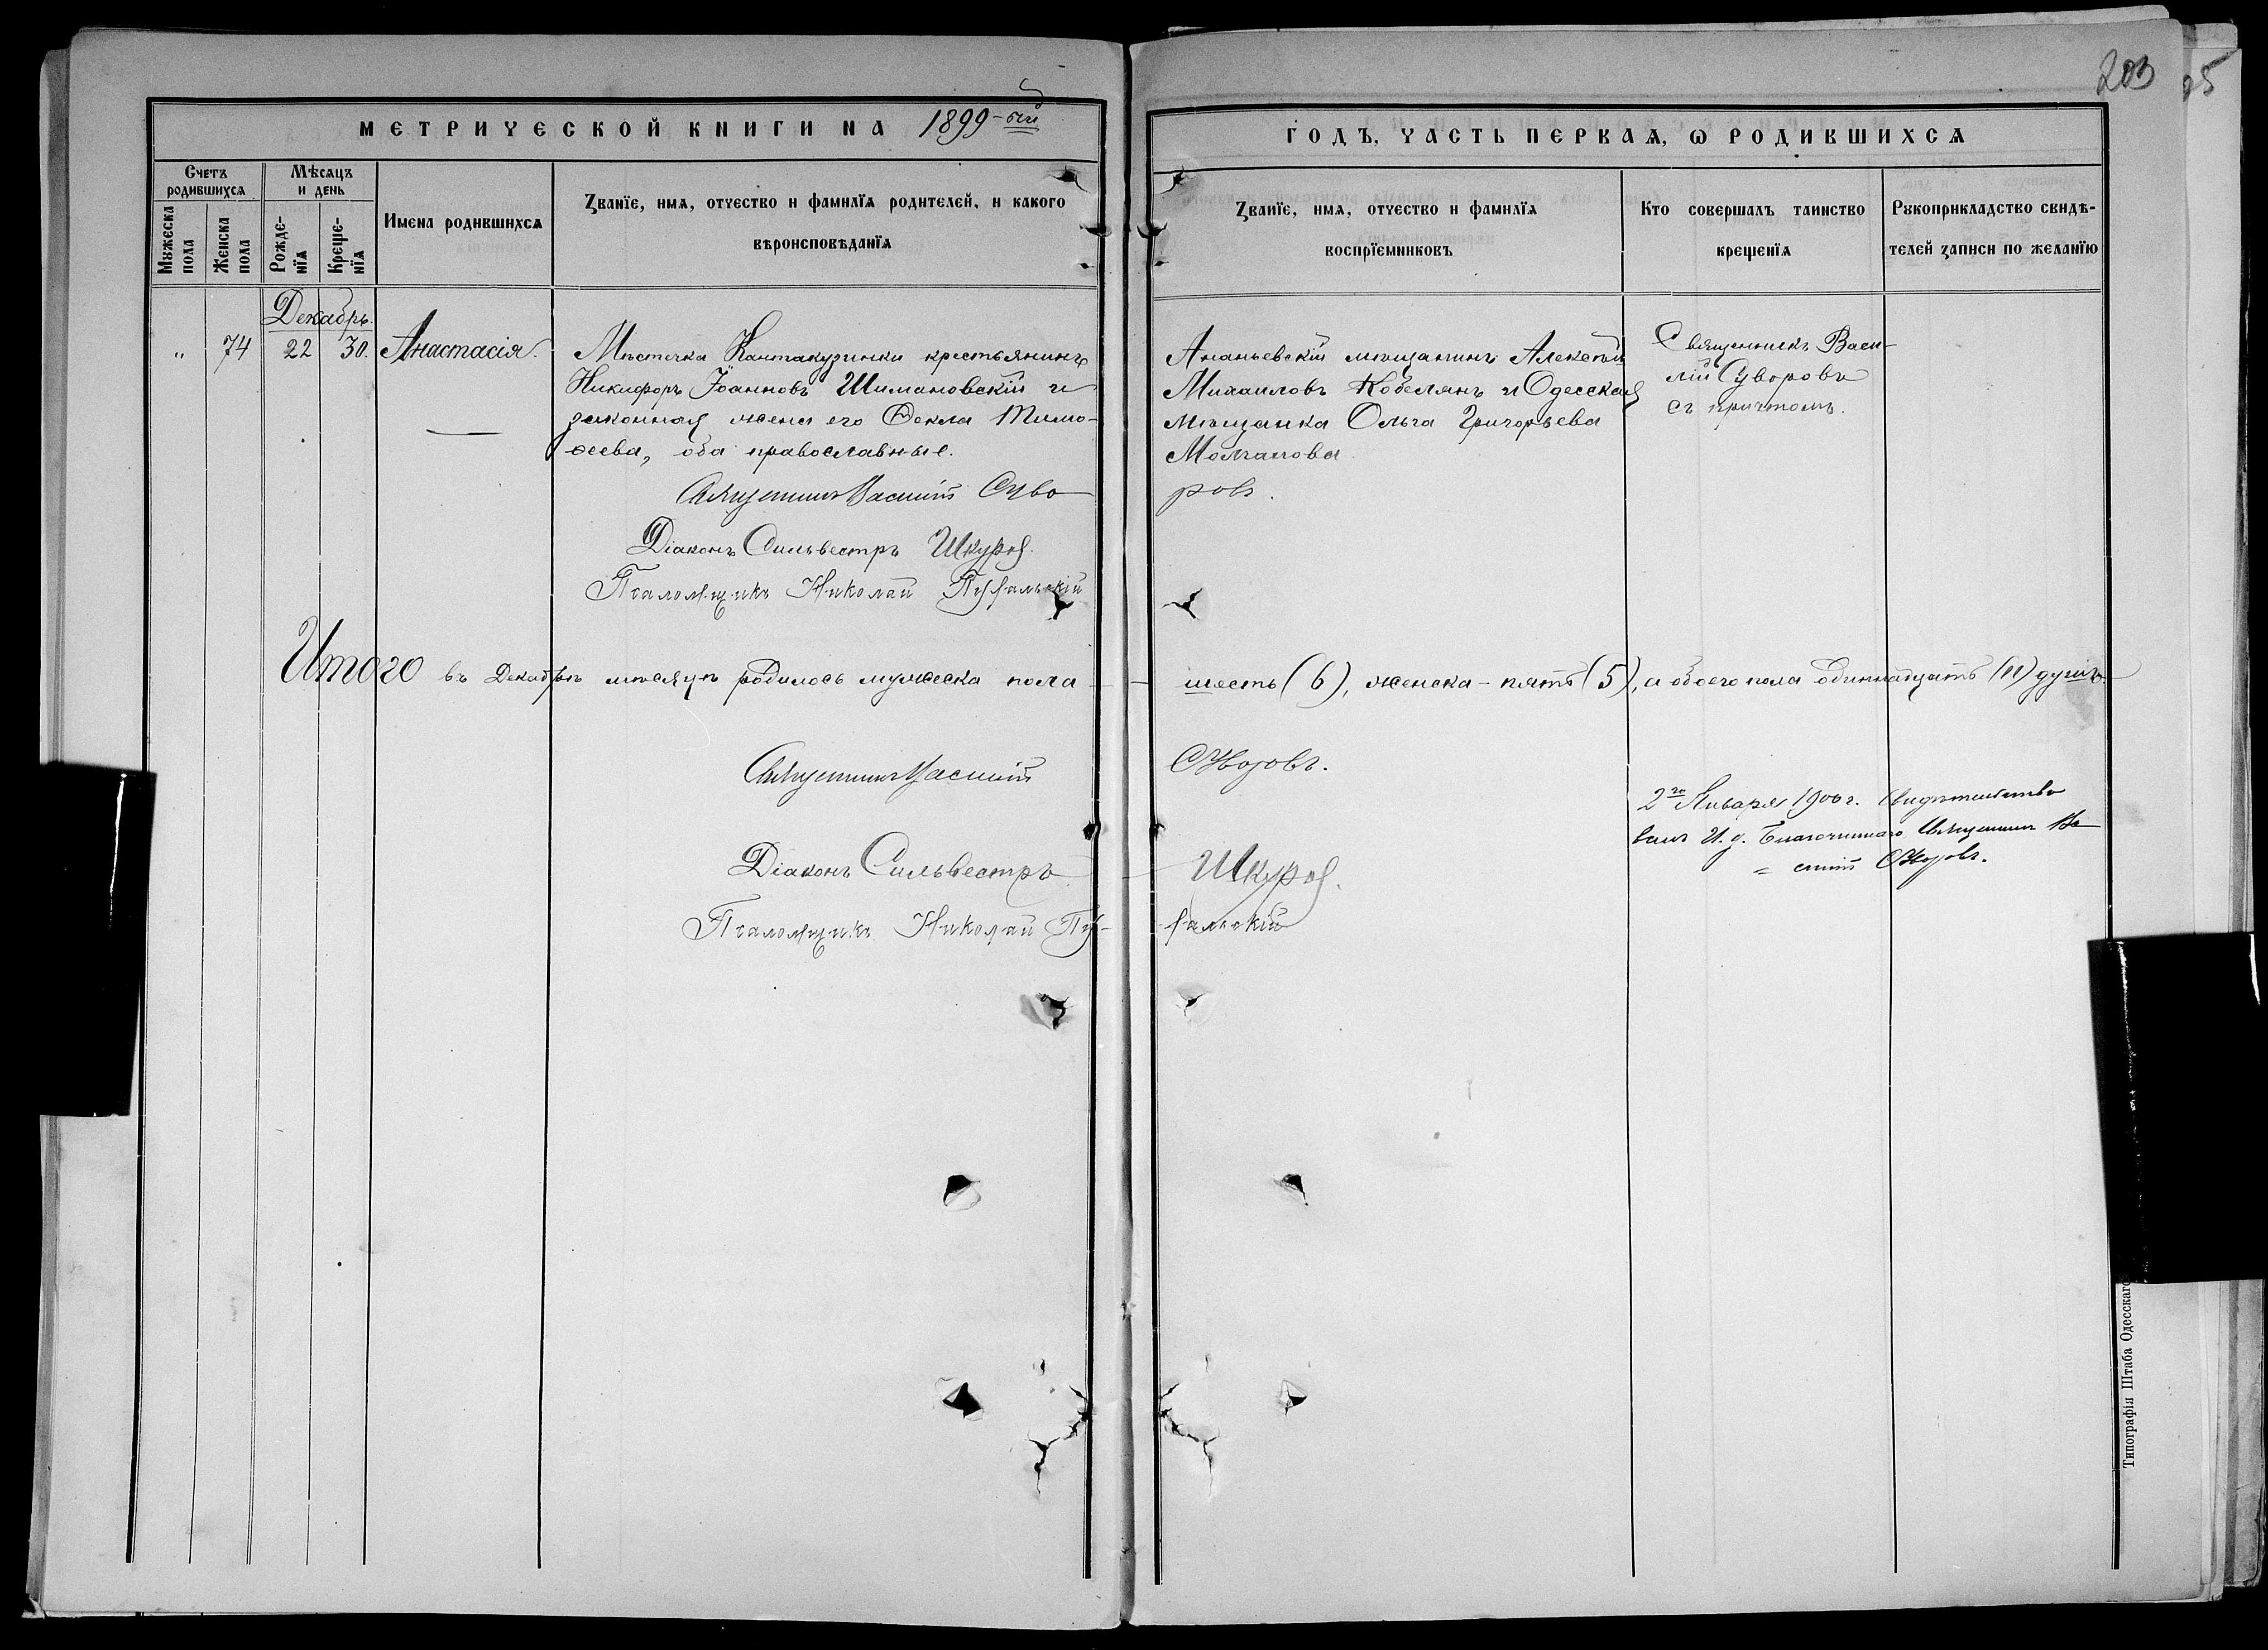 203
МЕТРИЧЕСКОЙ КНИГИ НА 1899-ый
ГОДЪ, ЧАСТЬ ПЕРВАѦ, Ѡ РОДИВШИХСѦ
Счетъ родившихсѧ
Мѣсѧцъ и день
Мꙋжеска пола
Женска пола
Рожде-нїѧ
Креще-нїѧ
Имена родившихсѧ
Званїе, имѧ, отчество и фамилїѧ родителей, и какого
вѣроисповѣданїѧ
Званїе, имѧ, отчество и фамилїѧ
воспрїемниковъ
Кто совершалъ таинство
крещенїѧ
Рꙋкоприкладство свидѣ-
телей записи по желанїю
Декабрь.
„ 74 22 30. Анастасія.
Мѣстечка Кантакузинки крестьянинъ
Никифоръ Іоанновъ Шимановскій и
законная жена его Ѳекла Тимо-
ѳеева, оба православные.
Ананьевскій мѣщанинъ Алексѣй
Михаиловъ Кобелянъ и Одесская
мѣщанка Ольга Григорьева
Священникъ Васи-
лій Суворовъ
съ причтомъ.
Священникъ Василій Суво
ровъ.
Діаконъ Сильвестръ Шкура.
Псаломщикъ Николай
Итого въ Декабрѣ мѣсяцѣ родилось мужеска пола — шесть (6), женска - пять (5), а обоего пола одиннадцать (11) душъ.
Священникъ Василій Суворовъ.
Діаконъ Сильвестръ Шкура.
Псаломщикъ Николай
2го Января 1900 г. Свидѣтельство
валъ И. д. Благочиннаго Священникъ Ва
= силій Суворовъ.
Типографія Штаба Одесскаго